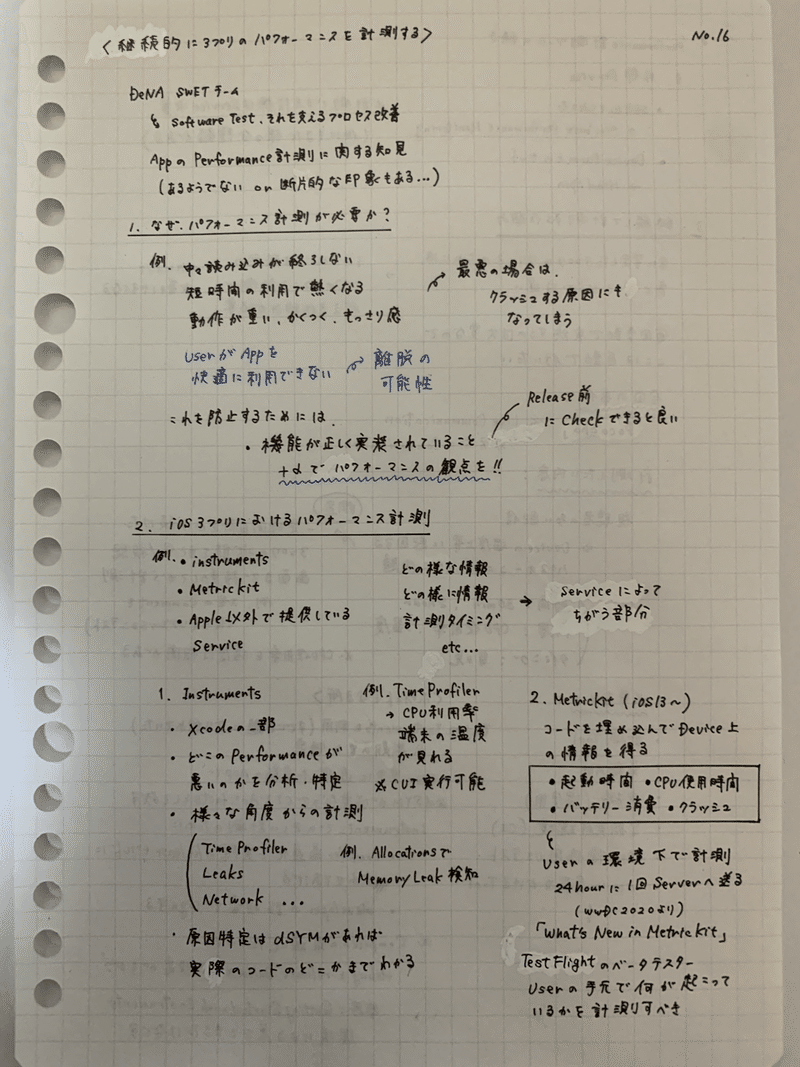 〈継続的にアプリのパフォーマンスを計測する〉
No.16
DeNA SWETチーム
↳ Software Test、それを支えるプロセス改善
Appの Performance計測に関する知見
(あるようでない or 断片的な印象もある...)
1. なぜ、パフォーマンス計測が必要か?
例. 中々読み込みが終らしない
短時間の利用で熱くなる
動作が重い、かくつく、もっさり感
最悪の場合は、
クラッシュする原因にも
なってしまう
UserがAppを
快適に利用できない
離脱の
可能性
これを防止するためには、
・機能が正しく実装されていること
+αで パフォーマンスの観点を!!
Release前
にCheckできると良い
2. iOSアプリにおけるパフォーマンス計測
例. • instruments
• Metrickit
• Apple以外で提供している
Service
どの様な情報
どの様に情報
計測タイミング
etc...
→ Serviceによって
ちがう部分
1. Instruments
・ Xcodeの一部
・ どこのPerformanceが
悪いのかを分析・特定
・ 様々な角度からの計測
Time Profiler
Leaks
Network ...
・ 原因特定はdSYMがあれば
実際のコードのどこかまでわかる
例. Time Profiler
→ CPU利用率
端末の温度
が見れる
※CUI実行可能
例. Allocationsで
MemoryLeak検知
2. Metrickit (iOS13〜)
コードを埋め込んでDevice上
の情報を得る
• 起動時間 • CPU使用時間
• バッテリー消費 • クラッシュ
↳ Userの環境下で計測
24hourに1回Serverへ送る
(WWDC2020より)
「What's New in Metrickit」
TestFlightのベータテスター
Userの手元で何が起こって
いるかを計測すべき